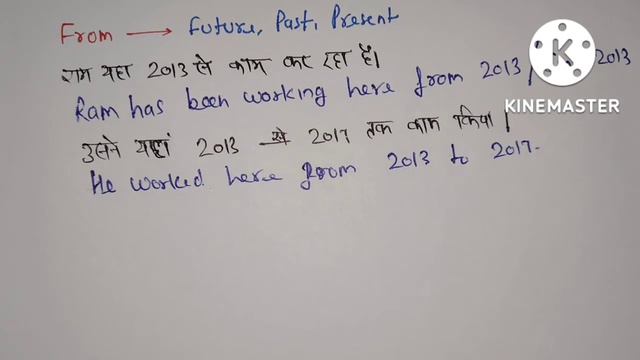 From → Future, Past, Present
राम यहा 2013 से काम कर रहा है।
Ram has been working here from 2013 / 2013
KINEMASTER
उसने यहां 2013 से 2017 तक काम किया।
He worked here from 2013 to 2017.